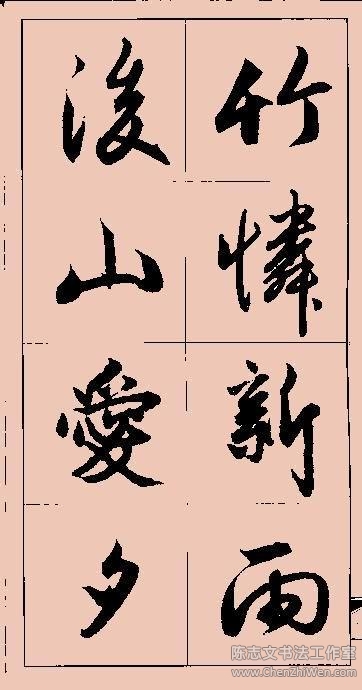 竹憐新雨
後山愛夕
陈志文书法工作室
www.ChenZhiWen.com